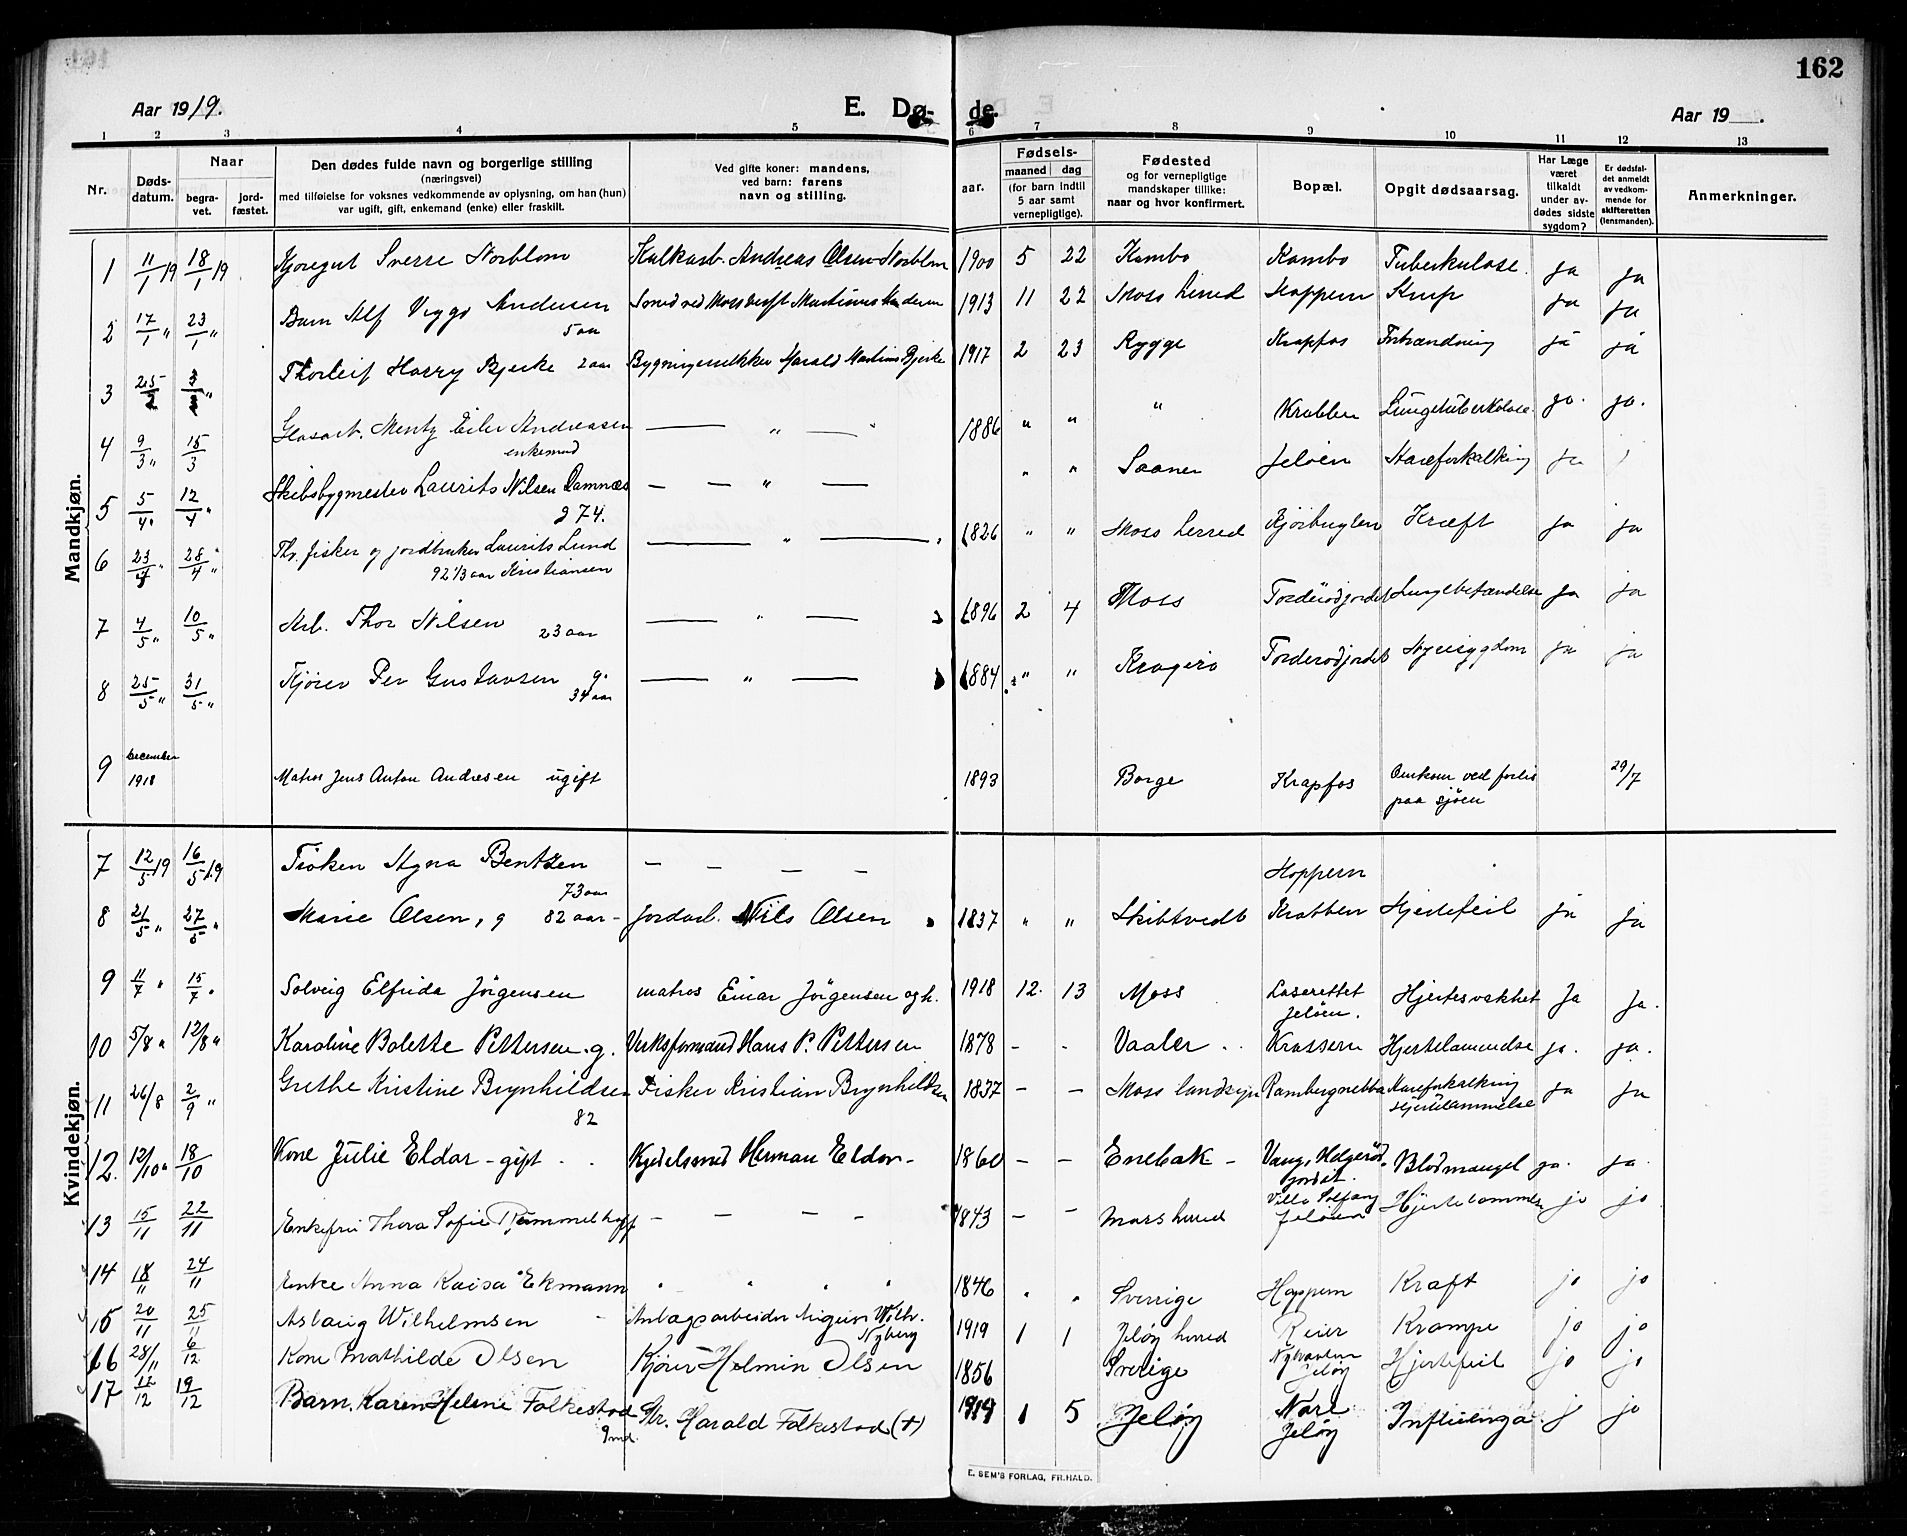 162
Aar 1919. E. Dø- de. Aar 19 .
1 2 3 4 5 6 7 8 9 10 11 12 13
Nr. Døds-datum. Naar begra-vet. jord-fæstet. Den dødes fulde navn og borgerlige stilling (næringsvei) med tilføielse for voksnes vedkommende av oplysning, om han (hun) var ugift, gift, enkemand (enke) eller fraskilt. Ved gifte koner: mandens, ved barn: farens navn og stilling. Fødsels- aar. maaned dag (for barn indtil 5 aar samt vernepligtige). Fødested og for vernepligtige mandskaper tillike: naar og hvor konfirmert. Bopæl. Opgit dødsaarsag. Har Læge været tilkaldt under av-dødes sidste sygdom? Er dødsfal-det anmeldt av vedkom-mende for skifteretten (lensmanden). Anmerkninger.
Mandkjøn.
1 11/1 19 18/1 19 Sverre Norblom Andreas Olsen Norblom 1900 5 22 Kambo Kambo Tuberkulose. ja ja
2 17/1 " 23/1 " Barn Alf Viggo Andersen 5 aar Smed ved Moss verft 1913 11 22 Moss herred Hoppern Krup ja ja
3 25/2 3/ " Thorleif Harry Bjerke 2 aar Harald Martinus Bjerke 1917 2 23 Rygge Krapfos ja ja
4 9/3 " 15/3 Glasarb. Mentz Eiler Andreasen enkemand — " — 1886 " " " Krabben Lungetuberkulose. ja. ja.
5 5/4 " 12/4 " Skibsbygmester Laurits Nilsen Ramnæs g 74. — — " — " " Saaner Jeløen Aareforkalkning ja
6 23/4 " 28/4 " Fh. fisker og jordbruker Laurits Lund Kristiansen 92 1/3 aar — " — 1826 " " Moss herred Kjørbuglen Kræft ja ja
7 4/5 " 10/5 " Arb. Thor Nilsen 23 aar — " — 1896 2 4 Moss Torderødjordet Lungebetændelse ja ja
8 25/5 " 31/5 " Kjører Per Gustavsen g. 34 aar — " — 1884 " " Kragerø Torderødjordet Nyresygdom ja ja
9 December 1918 Matros Jens Anton Andresen ugift 1893 Borge Krapfos Omkom ved forlis paa sjøen 29/7
Kvindekjøn.
7 12/5 19 16/5 19 Frøken Agna Bentzen 73 aar — — — — Hoppern
8 21/5 " 27/5 " Marie Olsen, g 82 aar – Jordarb. Nils Olsen 1837 " " Skibtvedt Krabben Hjertefeil ja ja
9 11/7 " 15/7 " Solveig Elfrida Jörgensen matros Einar Jörgensen og h. 1918 12. 13 Moss Lasarettet Jeløen. Hjertesvakhet Ja Ja.
10 5/8 " 12/8 " Karoline Bolette Pettersen. g. Verksformand Hans P. Pettersen 1878 - - Vaaler Krassern Hjertelammelse ja. ja.
11 26/8 2/9 " Grethe Kristine Brynhildsen 82 Fisker Kristian Brynhildsen 1837 — — Moss landsogn Rambergnebba Aareforkalkning Hjertelammelse ja ja
12. 12/10 " 18/10 Kone Julie Eldor – gift Kjedelsmed Herman Eldor – 1860 — — Enebak – Vang, Helgerødjordet. Blodmangel ja. ja.
13 15/11 22/11 Enkefru Thora Sofie Rømmelhoff — — — — 1843 — — Moss herred Villa Solfang Jeløen Hjertelammelse jo jo
14 18/11 24/11 Enke Anna Kaisa Ekmann " " " " 1846 " " Sverrige Hoppern Kraft jo jo
15 20/11 25/11 Aslaug Wilhelmsen Anlægsarbeider Sigurd Wilh. Nyberg 1919 1 1 Jeløy herred Reier Krampe jo jo
16 28/11 6/12 Kone Mathilde Olsen Kjører Helmin Olsen 1856 Sverige Jeløy Hjertefeil jo jo
17 12/12 19/12 Barn. Karen Helene Falkestad 9 md. Str. Harald Falkestad (+) 1919 1 5 Jeløy Nore Jeløy Influenza j jo
E. SEM'S FORLAG, FR.HALD.